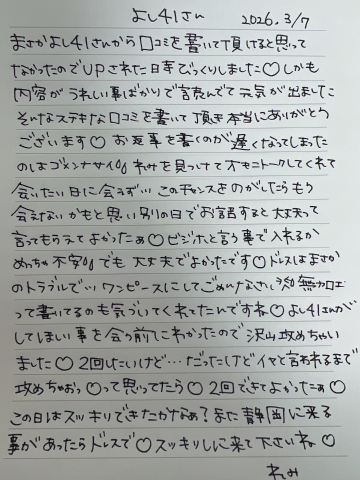 よし41さん 2026.3/7
まさかよし41さんから口コミを書いて頂けると思って
なかったのでUPされた日本びっくりしました♡しかも
内容がうれしい事ばかりで読んでて元気が出ました
そんなステキな口コミを書いて頂き本当にありがとう
ございます♡お返事を書くのが遅くなってしまった
のはゴメンナサイ れみを見つけてオキニトークしてくれて
会いたい日に会えず…このチャンスをのがしたらもう
会えないかもと思い別の日でお話すると大丈夫って
言ってもらえてよかったぁ♡ビジホと言う事で入れるか
めっちゃ不安 でも大丈夫でよかったです♡ドレスはまさか
のトラブルで…ワンピースにしてごめんなさい 無加工
って書いてるのも気づいてくれてたんですね♡よし41さんが
してほしい事を会う前にわかったので沢山攻めちゃい
ました♡2回したいけど…だったけどイヤと言われるまで
攻めちゃおっ♡って思ってたら♡2回できてよかったぁ♡
この日はスッキリできたかなぁ?また静岡に来る
事があったらドレスで♡スッキリしに来て下さいね♡
れみ